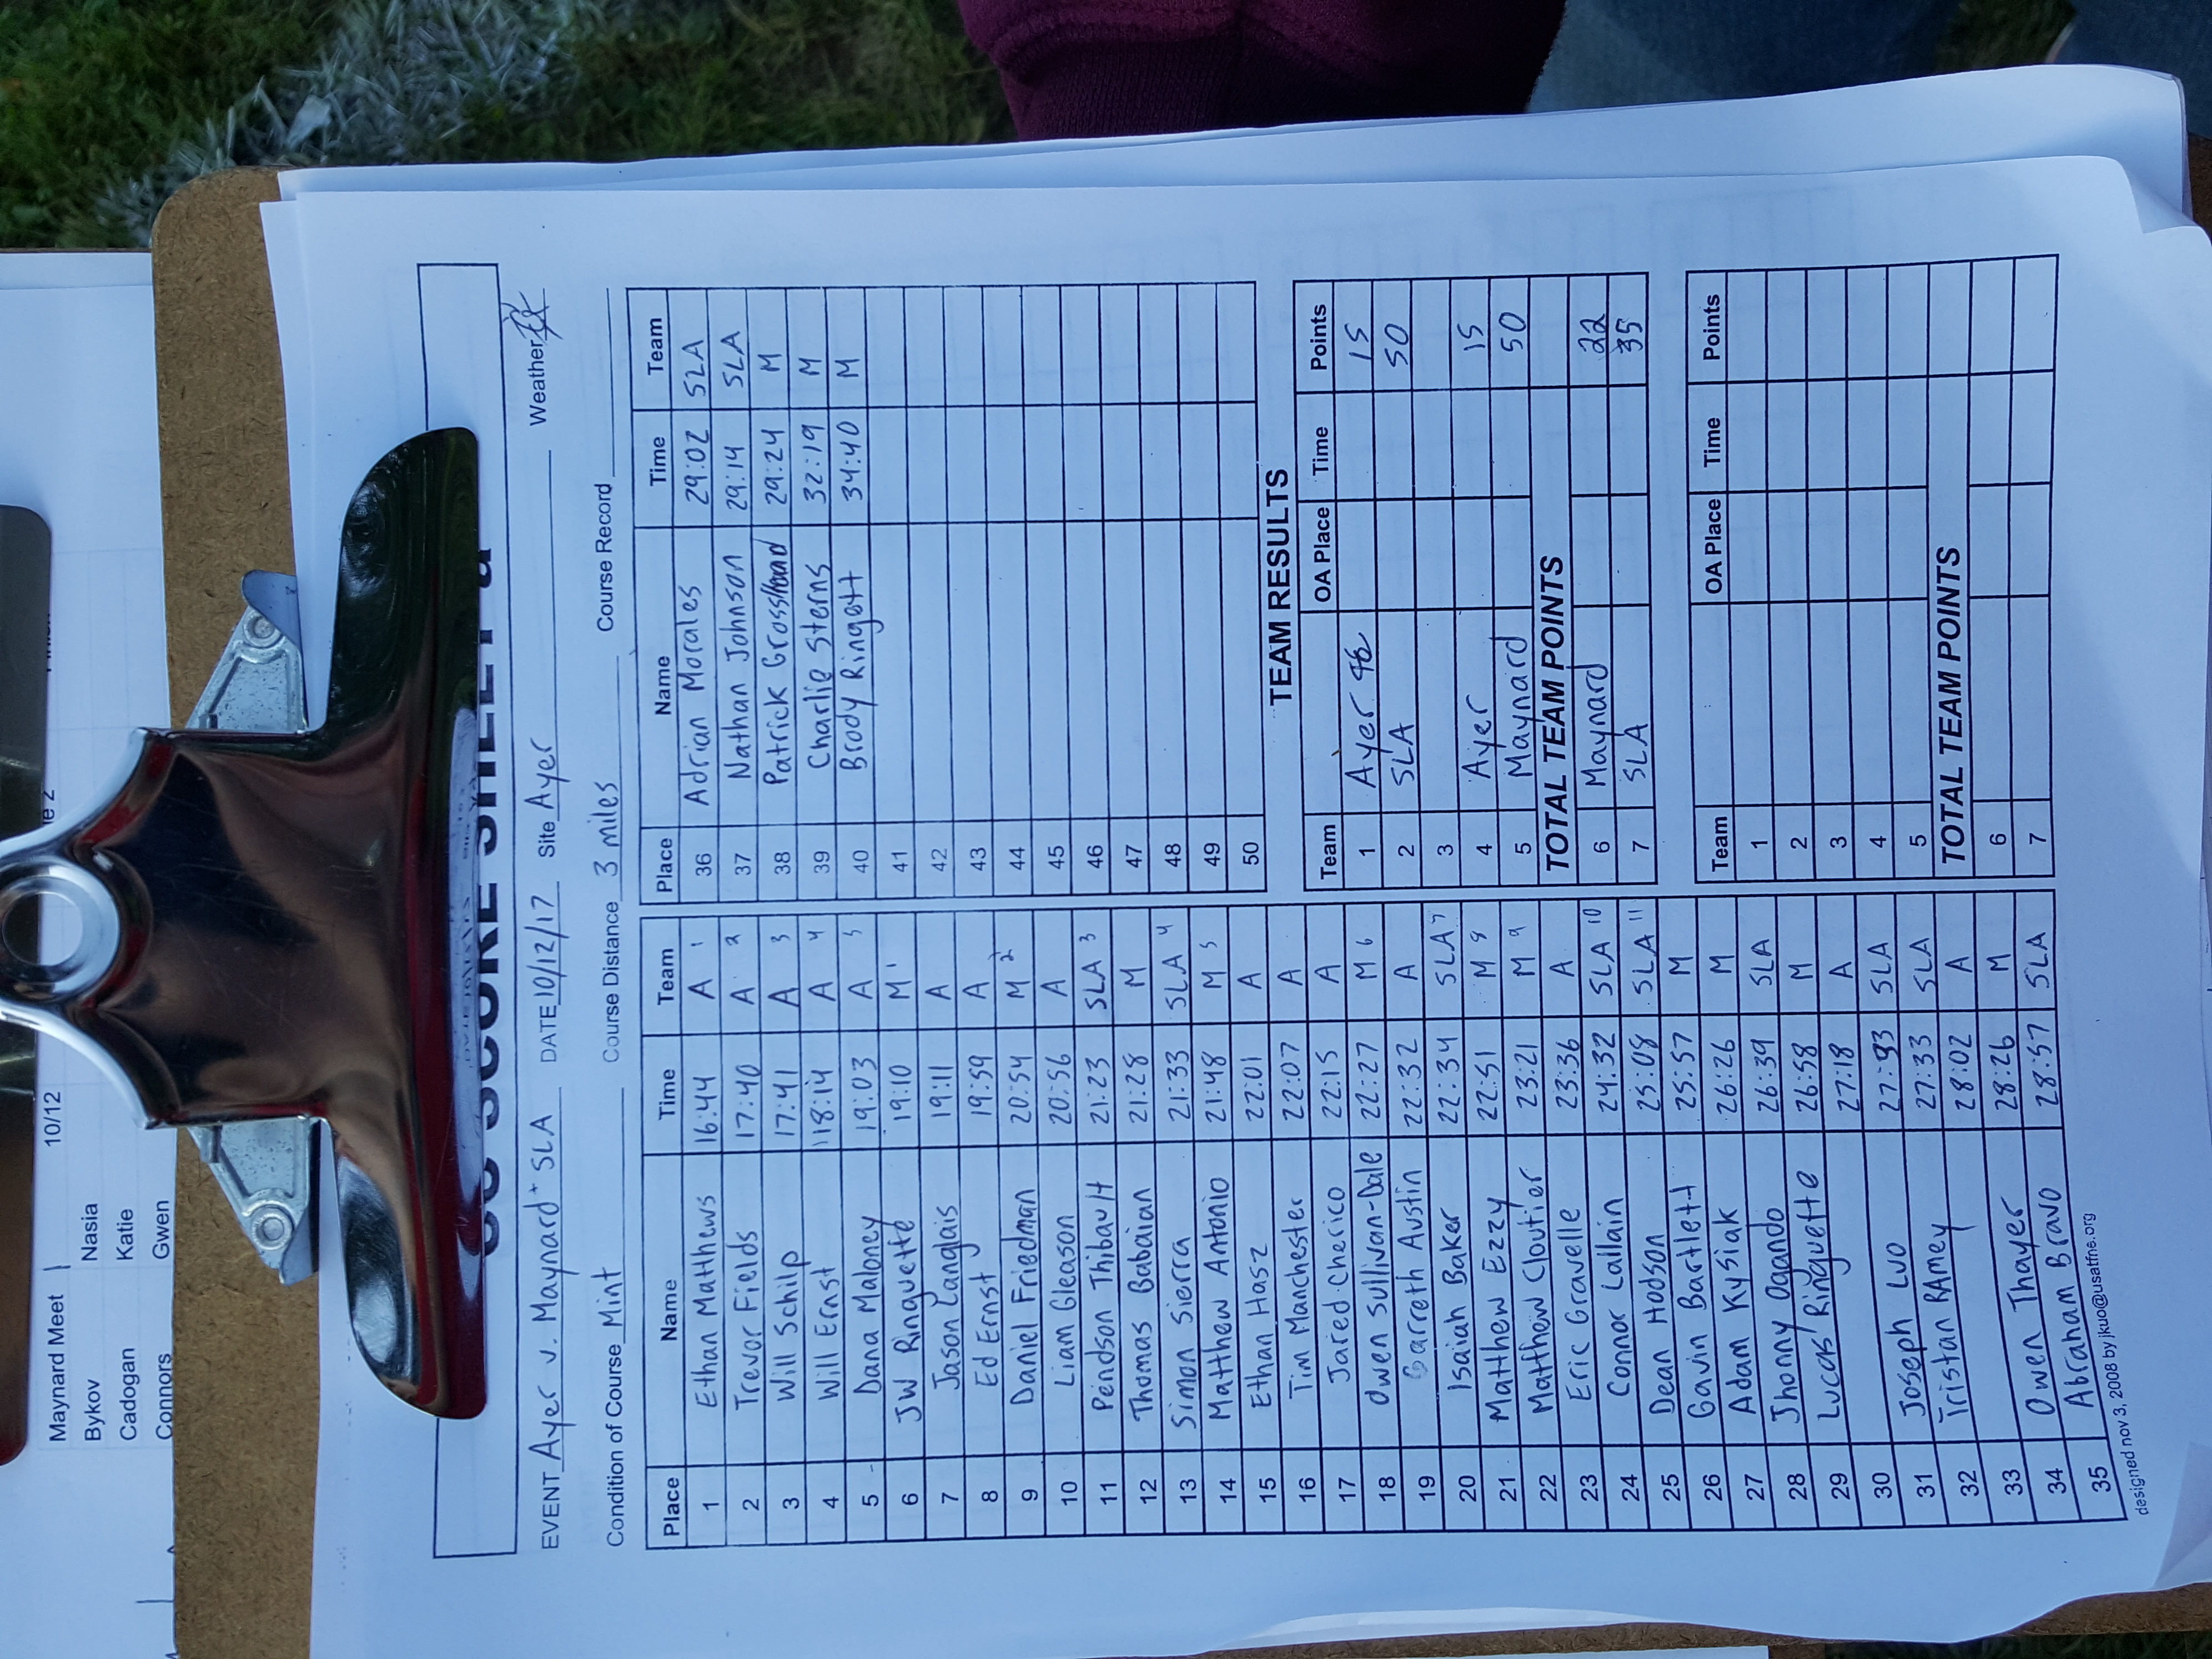 Maynard Meet 10/12
Bykov Nasia
Cadogan Katie
Connors Gwen
CC SCORE SHEET a
EVENT Ayer v. Maynard + SLA DATE 10/12/17 Site Ayer Weather
Condition of Course Mint Course Distance 3 miles Course Record
Place Name Time Team
1 Ethan Matthews 16:44 A 1
2 Trevor Fields 17:40 A 2
3 Will Schilp 17:41 A 3
4 Will Ernst 18:14 A 4
5 Dana Maloney 19:03 A 5
6 JW Ringuette 19:10 M 1
7 Jason Langlais 19:11 A
8 Ed Ernst 19:59 A
9 Daniel Friedman 20:54 M 2
10 Liam Gleason 20:56 A
11 Pendson Thibault 21:23 SLA 3
12 Thomas Babaian 21:28 M
13 Simon Sierra 21:33 SLA 4
14 Matthew Antonio 21:48 M 5
15 Ethan Hasz 22:01 A
16 Tim Manchester 22:07 A
17 Jared Cherico 22:15 A
18 Owen Sullivan-Dale 22:27 M 6
19 Garreth Austin 22:32 A
20 Isaiah Baker 22:34 SLA 7
21 Matthew Ezzy 22:51 M 8
22 Matthew Cloutier 23:21 M 9
23 Eric Gravelle 23:36 A
24 Connor Lallain 24:32 SLA 10
25 Dean Hodson 25:08 SLA 11
26 Gavin Bartlett 25:57 M
27 Adam Kysiak 26:26 M
28 Jhonny Ogando 26:39 SLA
29 Lucas Ringuette 26:58 M
30 27:18 A
31 Joseph Luo SLA
32 Tristan RAmey 27:33 SLA
33 28:02 A
34 Owen Thayer 28:26 M
35 Abraham Bravo 28:57 SLA
designed nov 3, 2008 by jkuo@usatfne.org
Place Name Time Team
36 Adrian Morales 29:02 SLA
37 Nathan Johnson 29:14 SLA
38 Patrick 29:24 M
39 Charlie Sterns 32:19 M
40 Brody Ringett 34:40 M
41
42
43
44
45
46
47
48
49
50
TEAM RESULTS
Team OA Place Time Points
1 Ayer 15
2 SLA 50
3
4 Ayer 15
5 Maynard 50
TOTAL TEAM POINTS
6 Maynard 22
7 SLA 35
Team OA Place Time Points
1
2
3
4
5
TOTAL TEAM POINTS
6
7